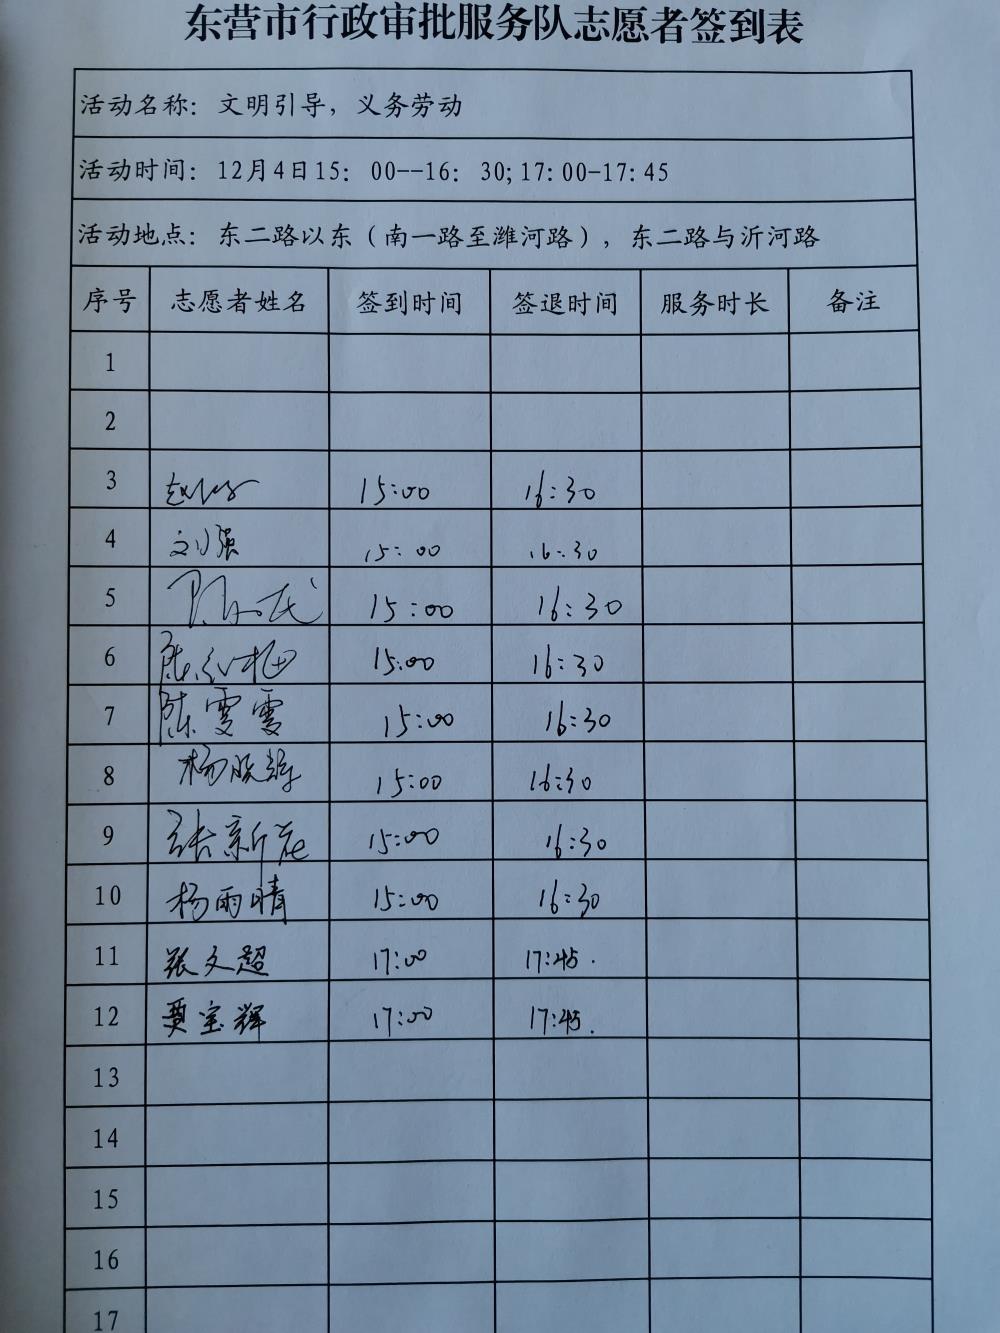 东营市行政审批服务队志愿者签到表
活动名称：文明引导，义务劳动
活动时间：12月4日15：00--16：30;17:00-17:45
活动地点：东二路以东（南一路至潍河路），东二路与沂河路
序号 志愿者姓名 签到时间 签退时间 服务时长 备注
1
2
3 15:00 16:30
4 刘强 15:00 16:30
5 15:00 16:30
6 陈红梅 15:00 16:30
7 陈雯雯 15:00 16:30
8 杨 15:00 16:30
9 张新花 15:00 16:30
10 杨雨晴 15:00 16:30
11 张文超 17:00 17:45.
12 贾宝辉 17:00 17:45.
13
14
15
16
17